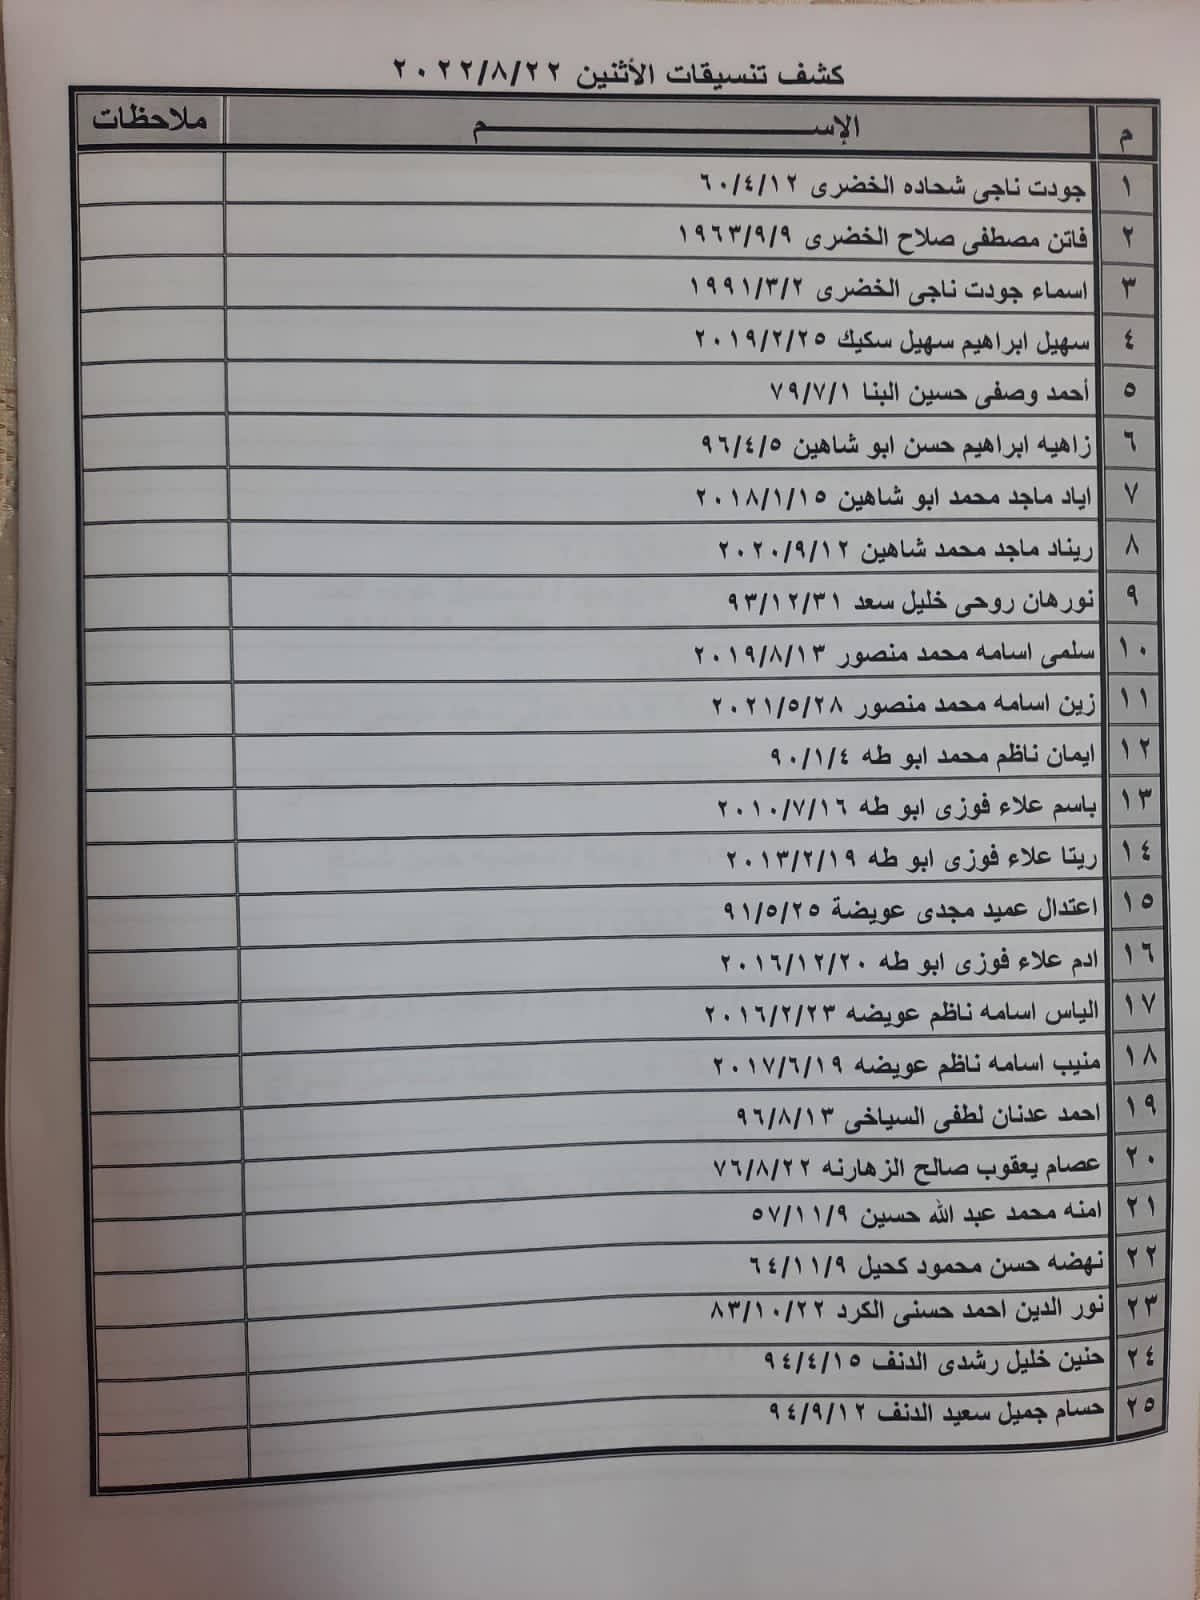 كشف تنسيقات الأثنين ٢٠٢٢/٨/٢٢
م الإســـــــــم ملاحظات
١ جودت ناجى شحاده الخضرى ٦٠/٤/١٢
٢ فاتن مصطفى صلاح الخضرى ١٩٦٣/٩/٩
٣ اسماء جودت ناجى الخضرى ١٩٩١/٣/٢
٤ سهيل ابراهيم سهيل سكيك ٢٠١٩/٢/٢٥
٥ أحمد وصفى حسين البنا ٧٩/٧/١
٦ زاهيه ابراهيم حسن ابو شاهين ٩٦/٤/٥
٧ اياد ماجد محمد ابو شاهين ٢٠١٨/١/١٥
٨ ريناد ماجد محمد شاهين ٢٠٢٠/٩/١٢
٩ نورهان روحى خليل سعد ٩٣/١٢/٣١
١٠ سلمى اسامه محمد منصور ٢٠١٩/٨/١٣
١١ زين اسامه محمد منصور ٢٠٢١/٥/٢٨
١٢ ايمان ناظم محمد ابو طه ٩٠/١/٤
١٣ باسم علاء فوزى ابو طه ٢٠١٠/٧/١٦
١٤ ريتا علاء فوزى ابو طه ٢٠١٣/٢/١٩
١٥ اعتدال عميد مجدى عويضة ٩١/٥/٢٥
١٦ ادم علاء فوزى ابو طه ٢٠١٦/١٢/٢٠
١٧ الياس اسامه ناظم عويضه ٢٠١٦/٢/٢٣
١٨ منيب اسامه ناظم عويضه ٢٠١٧/٦/١٩
١٩ احمد عدنان لطفى السياخى ٩٦/٨/١٣
٢٠ عصام يعقوب صالح الزهارنه ٧٦/٨/٢٢
٢١ امنه محمد عبد الله حسين ٥٧/١١/٩
٢٢ نهضه حسن محمود كحيل ٦٤/١١/٩
٢٣ نور الدين احمد حسنى الكرد ٨٣/١٠/٢٢
٢٤ حنين خليل رشدى الدنف ٩٤/٤/١٥
٢٥ حسام جميل سعيد الدنف ٩٤/٩/١٢